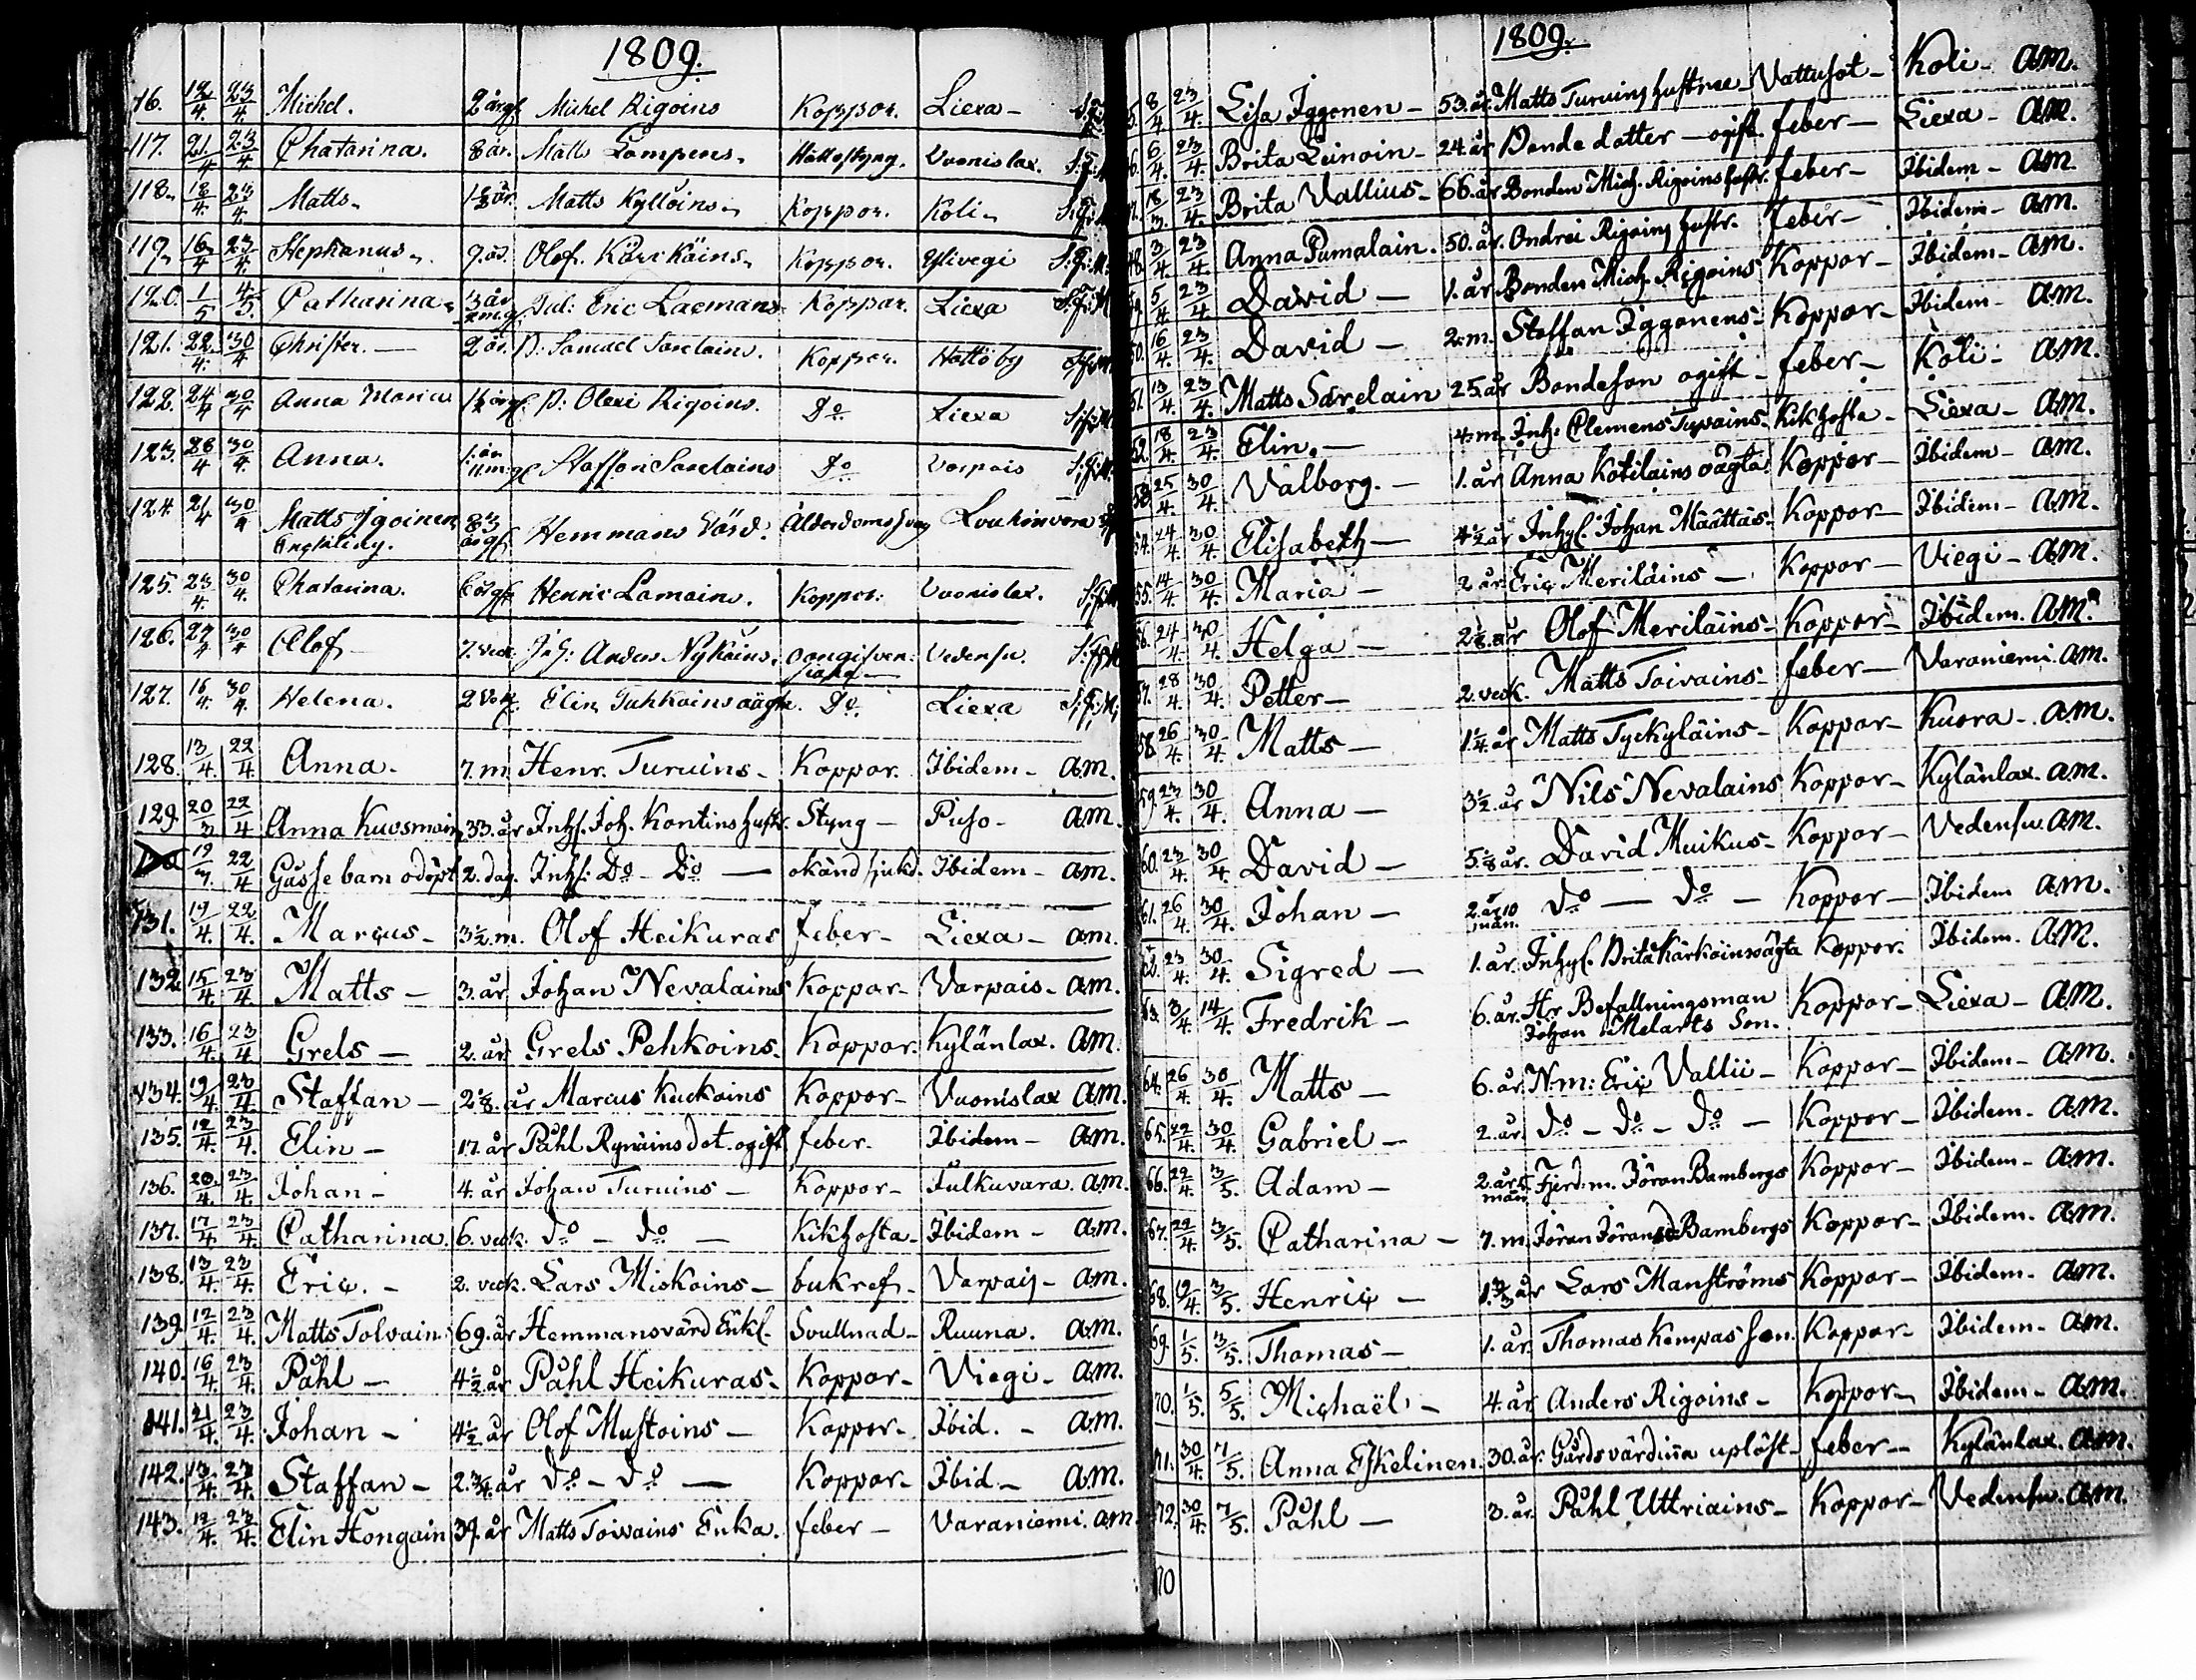 1809.
16. 12/4. 23/4. Michel. 2 år gl. Michel Rigoins Koppor. Liexa-
117. 21/4 23/4 Chatarina. 8 år. Matts Lompens. Hålloftyng. Vuonislax.
118. 18/4. 23/4. Matts. Matts Kyllöinens. Koppor. Koli.
119. 16/4 23/4. Stephanus. 9. år. Olof. Kärkkäins. Koppor. Ylivegi
120. 1/5 4/5. Catharina. Eric Lacmans Koppor. Liexa
121. 22/4. 30/4 Christer. 2 år. Samuel Sarelains. Koppor. Hattöby
122. 24/4 30/4 Anna Maria Olexi Rigoins. Do Liexa
123. 26/4 30/4. Anna. Staffan Sarelains Do Varpais
124 21/4 30/4 Matts Igoinen Hemmans Värd. Ålderdoms Loukinvara
125. 23/4. 30/4. Chatarina. Henric Lamains. Koppor. Vuonislax.
126. 27/4 30/4 Olof 7. veck. Anders Nykäins. oangifven. Vedensu.
127. 16/4. 30/4. Helena. Elin Tuhkains oägta. Do. Liexa
128. 13/4. 22/4 Anna. 7. m. Henr. Turuins. Koppor. Ibidem- A.M.
129. 20/3 22/4 Anna Kuosmain 33. år Inhs. Joh. Kontins hustr. Styng- Piiso- A.M.
19/3. 22/4 Gåsse barn odöpt 2. dag. Inhs: Do- Do — okänd sjukd. Ibidem- A.M.
131. 19/4. 22/4. Marcus- 3½. m. Olof Heikuras feber- Liexa- A.M.
132. 15/4. 23/4 Matts- 3. år Johan Nevalains Koppor- Varpais- A.M.
133. 16/4. 23/4 Grels- 2. år Grels Pehkoins. Koppor. Kylänlax. A.M.
134. 19/4. 23/4. Staffan- 2⅛. år Marcus Kuckoins Koppor- Vuonislax A.M.
135. 12/4. 23/4. Elin- 17. år Påhl Rynäins dot. ogift feber. Ibidem- A.M.
136. 20/4. 23/4. Johan- 4. år Johan Turuins- Koppor- Julkuvara. A.M.
137. 17/4. 23/4. Catharina. 6. veck. do - do - Kikhosta- Ibidem- A.M.
138. 13/4. 23/4. Eric. - 2. veck. Lars Miskoins- bukref- Varpais- A.M.
139. 12/4. 23/4. Matts Tolvain 69. år Hemmansvärd Enkl. Svullnad- Ruuna. A.M.
140. 16/4. 23/4. Påhl- 4½. år Påhl Heikuras- Koppor- Viegi- A.M.
141. 21/4. 23/4. Johan- 4½ år Olof Mustoins- Koppor- Ibid.- A.M.
142. 13/4. 23/4. Staffan- 2.¾. år do - do — Koppor- Ibid- A.M.
143. 12/4. 23/4. Elin Hongain 39. år Matts Toivains Enka. feber- Varaniemi. A.M.
1809.
8/4 23/4. Lisa Iggonen- 53. år. Matts Turuins hustrue- Vattusot- Koli- A.M.
6/4. 23/4. Brita Leinoin- 24. år Bonde dotter- ogift. feber- Liexa- A.M.
18/3. 23/4. Brita Vallius- 66. år Bonden Mich. Rigoins hustr. feber- Ibidem- A.M.
48. 3/4. 23/4. Anna Pumalain. 50. år. Ondrei Rigoins hustr. feber- Ibidem- A.M.
5/4 23/4. David- 1. år Bonden Mich. Rigoins Koppor- Ibidem- A.M.
50. 16/4. 23/4. David- 2. m. Staffan Iggonens- Koppor- Ibidem- A.M.
51. 13/4. 23/4. Matts Sarelain 25. år Bondeson ogift- feber- Koli- A.M.
52. 18/4. 23/4. Elin.- 4. m. Inh: Clemens Turvains- Kikhosta- Liexa- A.M.
53. 25/4. 30/4. Valborg.- 1. år Anna Kotilains oägta Koppor- Ibidem- A.M.
54. 24/4. 30/4. Elisabeth- 4½ år Inhys. Johan Määttäs- Koppor- Ibidem- A.M.
55. 14/4. 30/4. Maria- 2. år. Eric Meriläins- Koppor- Viegi- A.M.
56. 24/4. 30/4. Helga- 2⅛. år Olof Meriläins- Koppor- Ibidem. A.M.
57. 28/4. 30/4. Petter- 2. veck. Matts Toivains- feber- Varaniemi. A.M.
58. 26/4. 30/4. Matts- 1¼. år Matts Tyckyläins- Koppor- Kuora- A.M.
59. 23/4. 30/4. Anna- 3½. år Nils Nevalains Koppor- Kylänlax. A.M.
60. 23/4. 30/4. David- 5⅛ år. David Muikus- Koppor- Vedensu. A.M.
61. 26/4. 30/4. Johan- 2. år 10 mån. do — do — Koppor- Ibidem A.M.
62. 23/4. 30/4. Sigred- 1. år. Inhys. Brita Kärkäins oägta Koppor. Ibidem. A.M.
63. 3/4. 14/4. Fredrik- 6. år. Hr Befallningsman Koppor- Liexa- A.M.
Johan Melarts Son.
64. 26/4. 30/4. Matts- 6. år. N:m: Eric Vallii- Koppor- Ibidem- A.M.
65. 22/4. 30/4. Gabriel- 2. år do - do - do - Koppor- Ibidem. A.M.
66. 22/4. 3/5. Adam- 2. år mån Fjerd: m. Jöran Bambergs Koppor- Ibidem- A.M.
67. 22/4. 3/5. Catharina- 7. m. Jöran Bambergs Koppor- Ibidem. A.M.
68. 19/4. 3/5. Henric- 1.⅔ år Lars Manströms Koppor- Ibidem- A.M.
69. 1/5. 3/5. Thomas- 1. år. Thomas Kempas son. Koppor- Ibidem- A.M.
70. 1/5. 5/5. Michaël- 4. år Anders Rigoins- Koppor- Ibidem- A.M.
71. 30/4. 7/5. Anna Eskelinen. 30. år. Gårdsvärdinna uplöst- feber- Kylänlax. A.M.
72. 30/4. 7/5. Påhl- 3. år. Påhl Uttriains- Koppor- Vedensu. A.M.
70